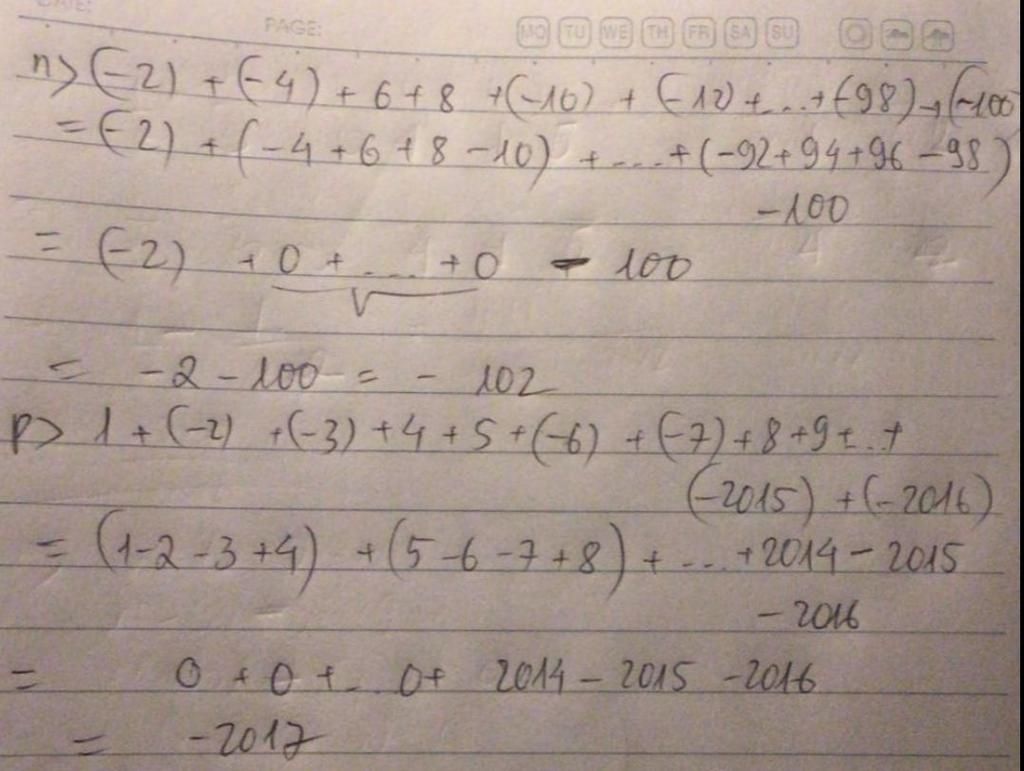 PAGE: MO TU WE TH FR SA SU
n> (-2) + (-4) + 6 + 8 + (-10) + (-12) + ... + (-98) + (-100
= (-2) + (-4 + 6 + 8 - 10) + .... + (-92 + 94 + 96 - 98)
- 100
= (-2) + 0 + .... + 0 - 100
= -2 - 100 = - 102
p> 1 + (-2) + (-3) + 4 + 5 + (-6) + (-7) + 8 + 9 + ... +
(-2015) + (-2016)
= (1 - 2 - 3 + 4) + (5 - 6 - 7 + 8) + ... + 2014 - 2015
- 2016
= 0 + 0 + ... 0 + 2014 - 2015 - 2016
= -2017